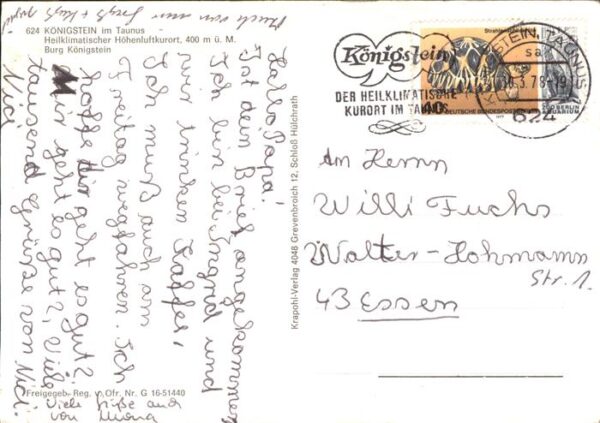 624 KÖNIGSTEIN im Taunus
Heilklimatischer Höhenluftkurort, 400 m ü. M.
Burg Königstein
Hallo Papa!
Ist dein Brief angekommen
Ich bin bei Ingrid und
wir trinken Kaffee,
Ich muß auch am
Freitag wegfahren. Ich
hoffe dir geht es gut?
Mir geht es gut?, Viele
tausend Grüße von Nici.
Nici
Freigegeb. Reg. v. Ofr. Nr. G 16-51440
Viele Grüße auch
von
Krapohl-Verlag 4048 Grevenbroich 12, Schloß Hülchrath
Königstein
DER HEILKLIMATISCHE
KURORT IM TAUNUS
40
DEUTSCHE BUNDESPOST
ZOO BERLIN
AQUARIUM
KÖNIGSTEIN, TAUNUS
3.78-19
624
An Herrn
Willi Fuchs
Walter-Hohmann
Str. 1.
43 Essen